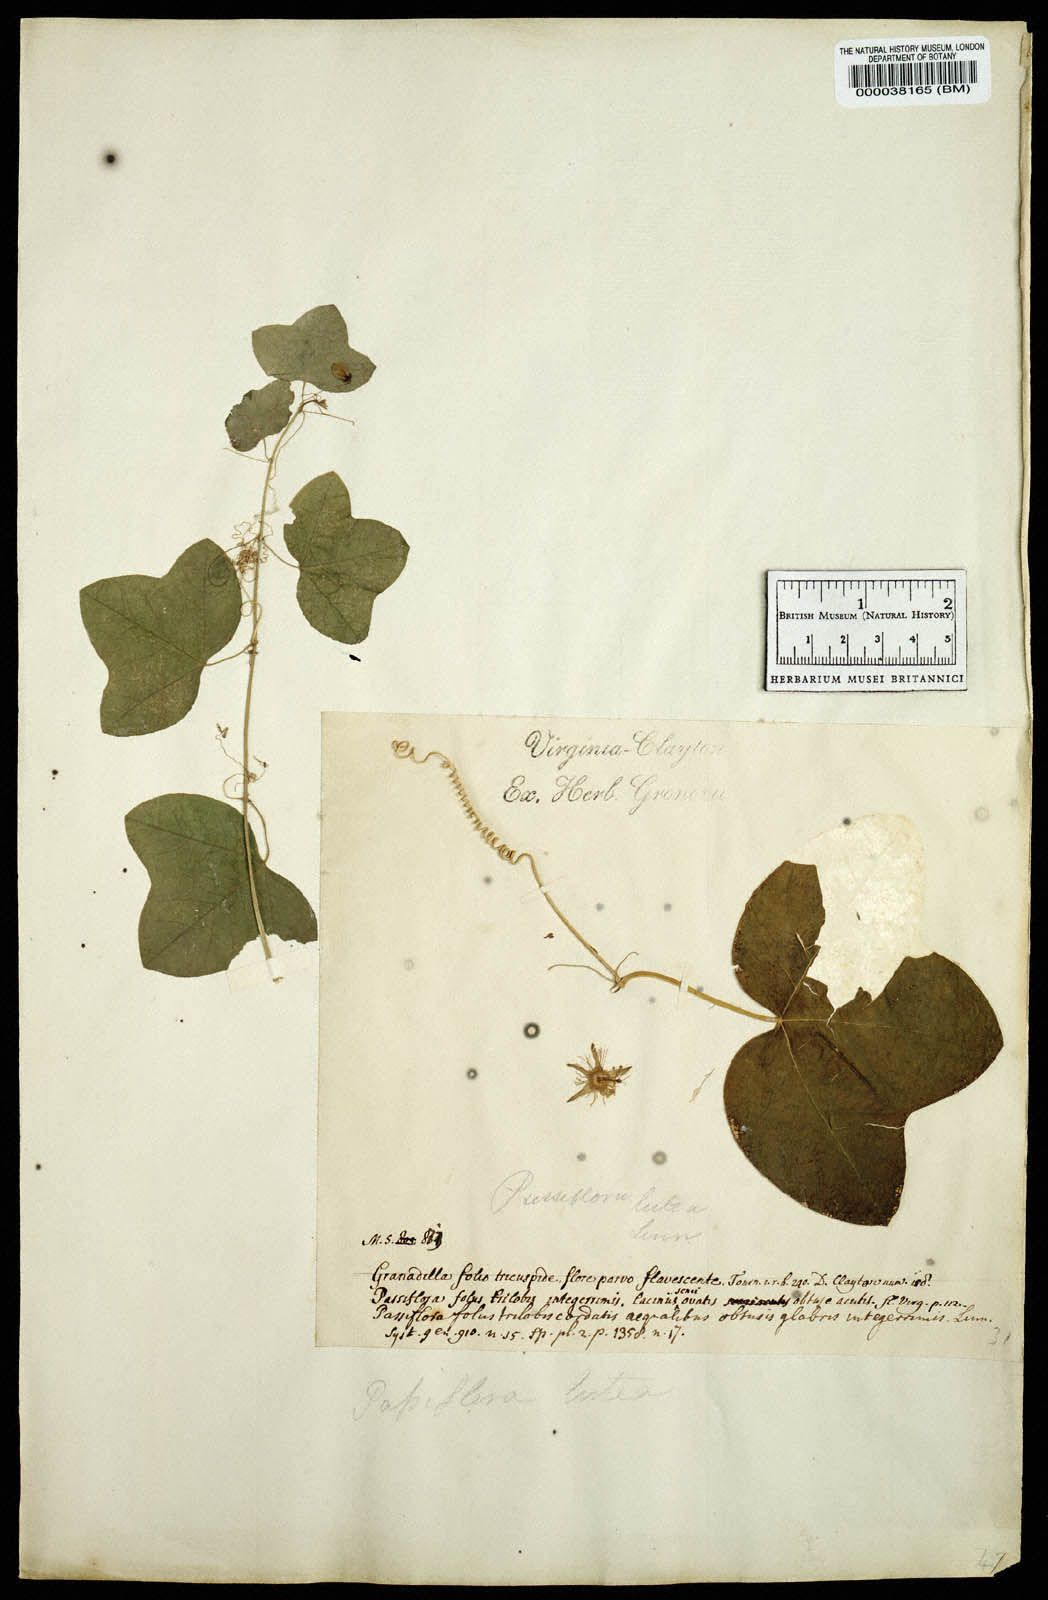 THE NATURAL HISTORY MUSEUM, LONDON
DEPARTMENT OF BOTANY
000038165 (BM)
1 2
BRITISH MUSEUM (NATURAL HISTORY)
1 2 3 4 5
HERBARIUM MUSEI BRITANNICI
Virginia - Clayton
Ex. Herb. Gronovii
Passiflora lutea
Linn
M. S.
Granadilla folio tricuspide, flore parvo flavescente. Tourn. i. r. h. 240. D. Clayton num.
Passiflora foliis trilobis integerrimis, laciniis ovatis obtuse acutis. Fl. Virg. p. 112.
Passiflora foliis trilobis cordatis aequalibus obtusis glabris integerrimis. Linn.
Syst. gen. 910. n. 15. Sp. pl. 2. p. 1358. n. 17.
Passiflora lutea
47